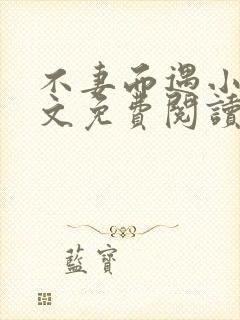 不妻而遇小
文免費閱讀
藍寶